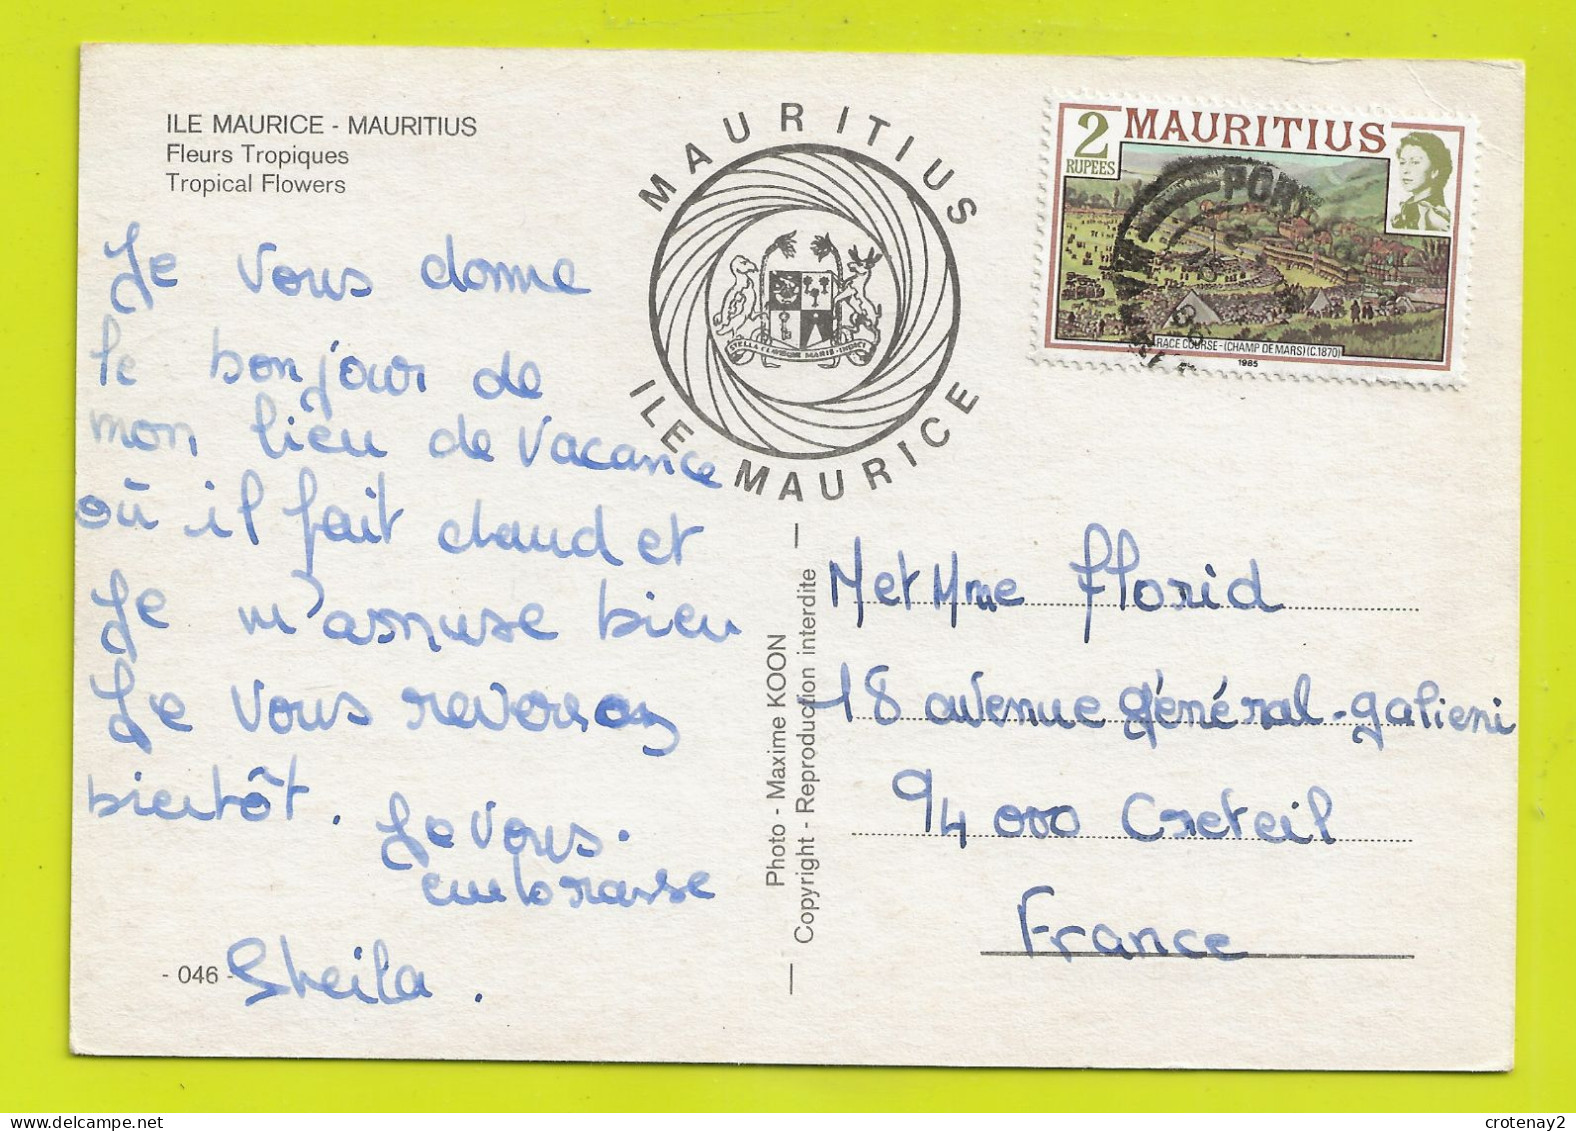 ILE MAURICE - MAURITIUS
Fleurs Tropiques
Tropical Flowers
Je vous donne
le bonjour de
mon lieu de vacance
où il fait chaud et
Je m'amuse bien
Je vous
bientôt. Je vous
embrasse
Sheila.
- 046 -
MAURITIUS
STELLA CLAVISQUE MARIS INDICI
ILE MAURICE
2 RUPEES
MAURITIUS
PORT
RACE COURSE-(CHAMP DE MARS)(C.1870)
1985
Photo - Maxime KOON
Copyright - Reproduction interdite
M et Mme Florid
18 avenue général-galieni
94 000 Creteil
France
crotenay2